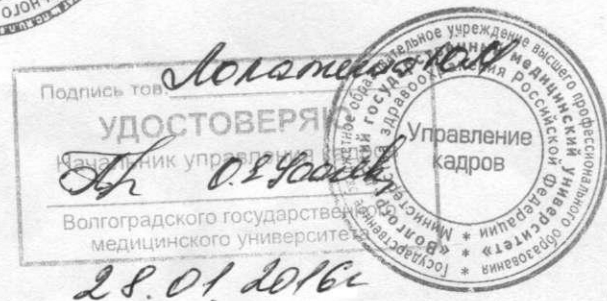 Подпись тов. Лопатина Ю.М
УДОСТОВЕРЯЮ
Начальник управления кадров
О.Е
Волгоградского государственного
медицинского университета
28.01.2016г
Управление
кадров
Государственное бюджетное образовательное учреждение высшего профессионального образования
«Волгоградский государственный медицинский университет»
Министерства здравоохранения Российской Федерации